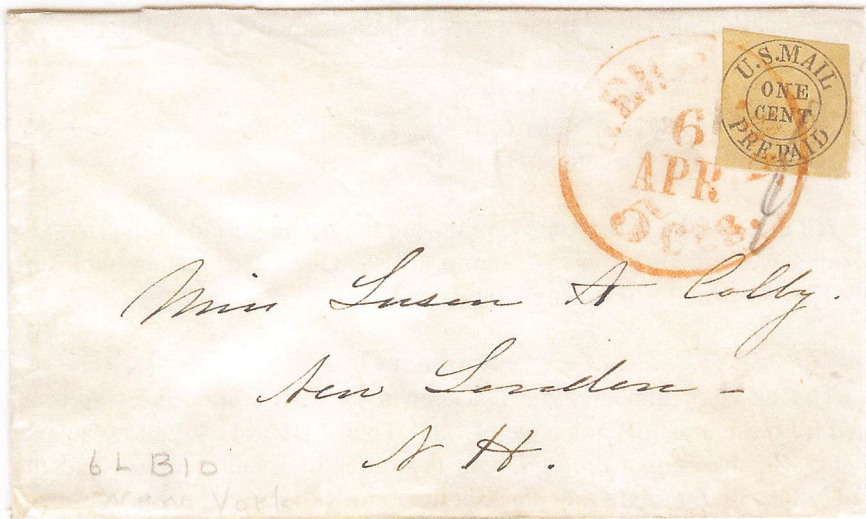 U.S.MAIL
ONE
CENT
PREPAID
NEW
6
APR
5 cts.
Miss Susan A Colby.
New London -
N H.
6LB10
New York